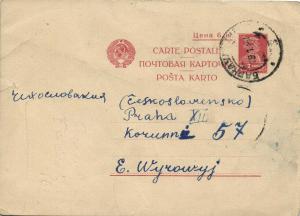 Цена 6
CARTE POSTALE
ПОЧТОВАЯ КАРТОЧКА
POŜTA KARTO
Чехословакия (Československo)
Praha XII
Korunní 57
E. Wyrowyj